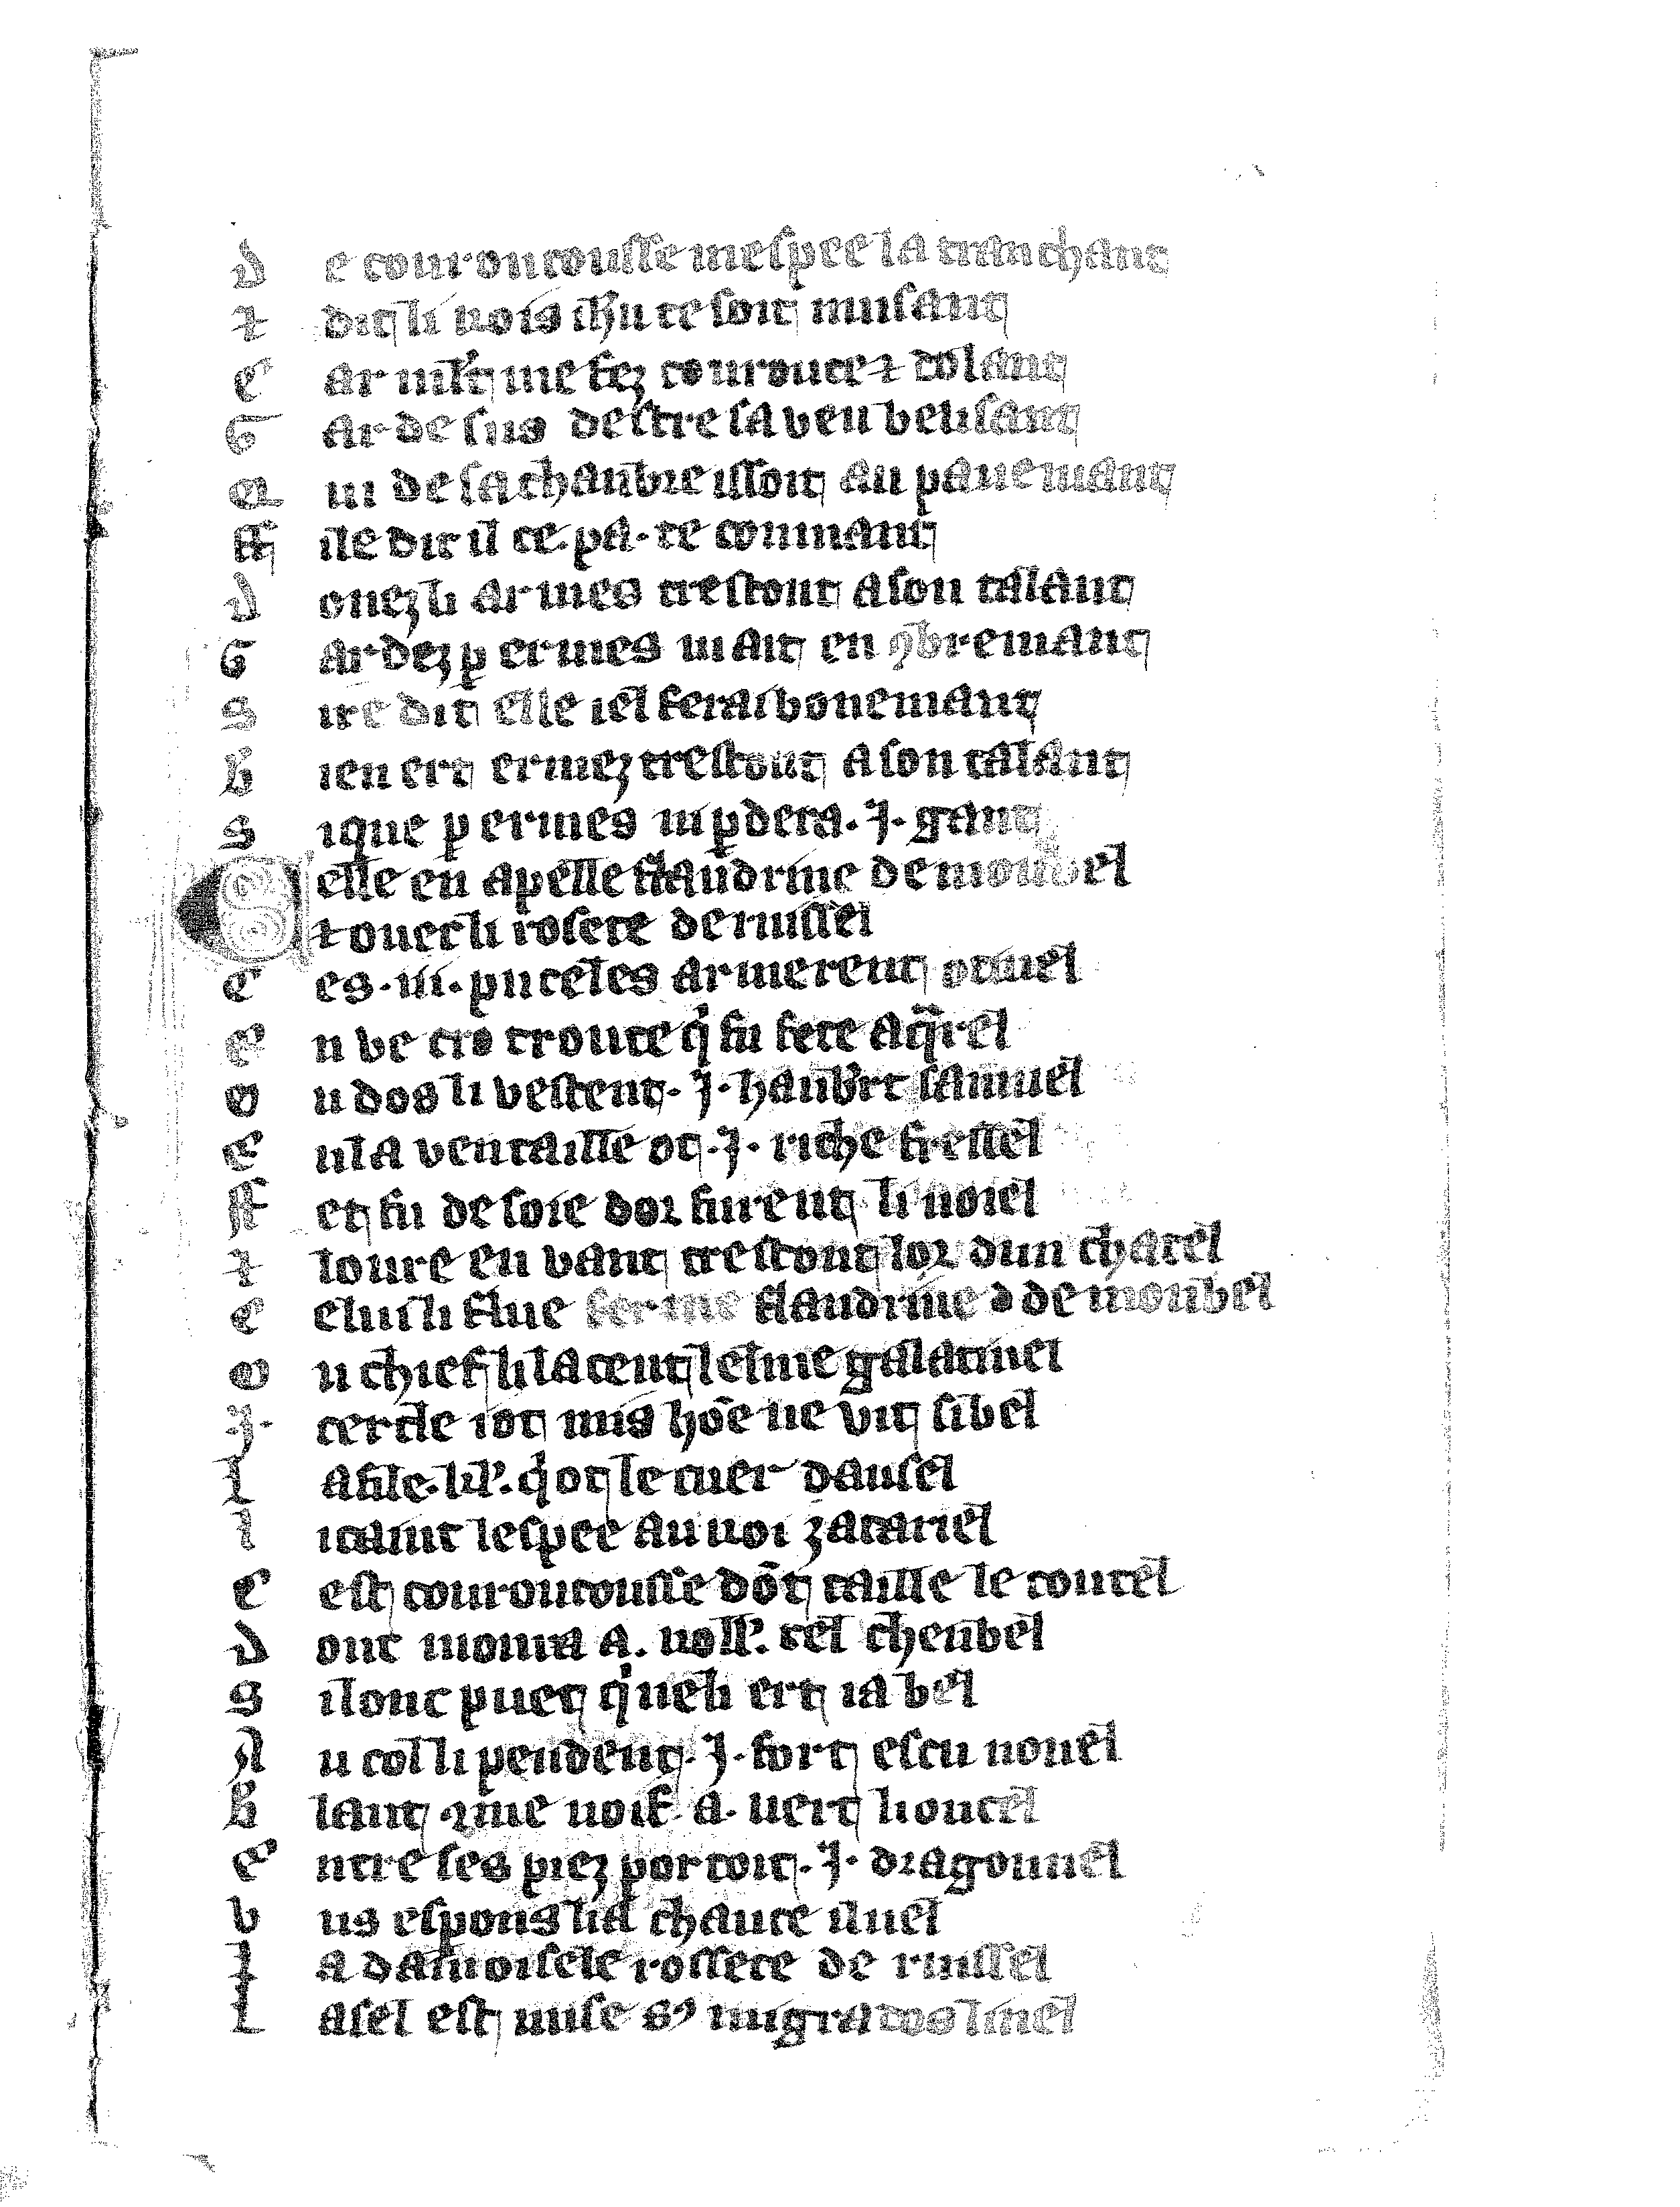 D e couroucousse mespee la tranchant
⁊ dit li rois ihu te soit musant
C ar mlt me fez courouce ⁊ dolant
G ar de sus destre sa veu belisant
Q ui de sa chanbre issoit au pauemant
ff ile dit il ce. pa. te conmant
D onez li armes trestout a son talant
G ardez p ermes ni ait en ꝯbremant
S ire dit elle iel ferai bonemant
B ien ert ermez trestout a son talant
S i que p ermes ni pdera . J . gant
C elle en apelle flaudrine de monbel
⁊ ouec li rosete de russel
C es . iii . puceles armerent otinel
E n be tro trouce q fu fete a qrel
O u dos li vestent . J . haubert samuel
E n la ventaille ot . J . riche fressel
ff et fu de soie dor furent li noiel
⁊ toure en vant trestout lor dun chatel
C elui li flue ferme flaudrine d de monbel
O u chief li lacent lelme galatinel
J . cercle iot mis hōe ne vit si bel
L a file . kl'. q ot le cuer dausel
l i ceint lespee au roi zacariel
C est courouceusse dōt taille le coutel
D ont monta a . noll'. tel chenbel
S il ont puet q ueli ert ia bel
A u col li pendent . J . fort escu nouel
B lant ꝯme noif . a . vert lioncel
E ntre ses piez portoit . J . dragonnel
b us espons li a chauce isnel
L a damoisele rossete de russel
L a sel est mise s' migrados linel